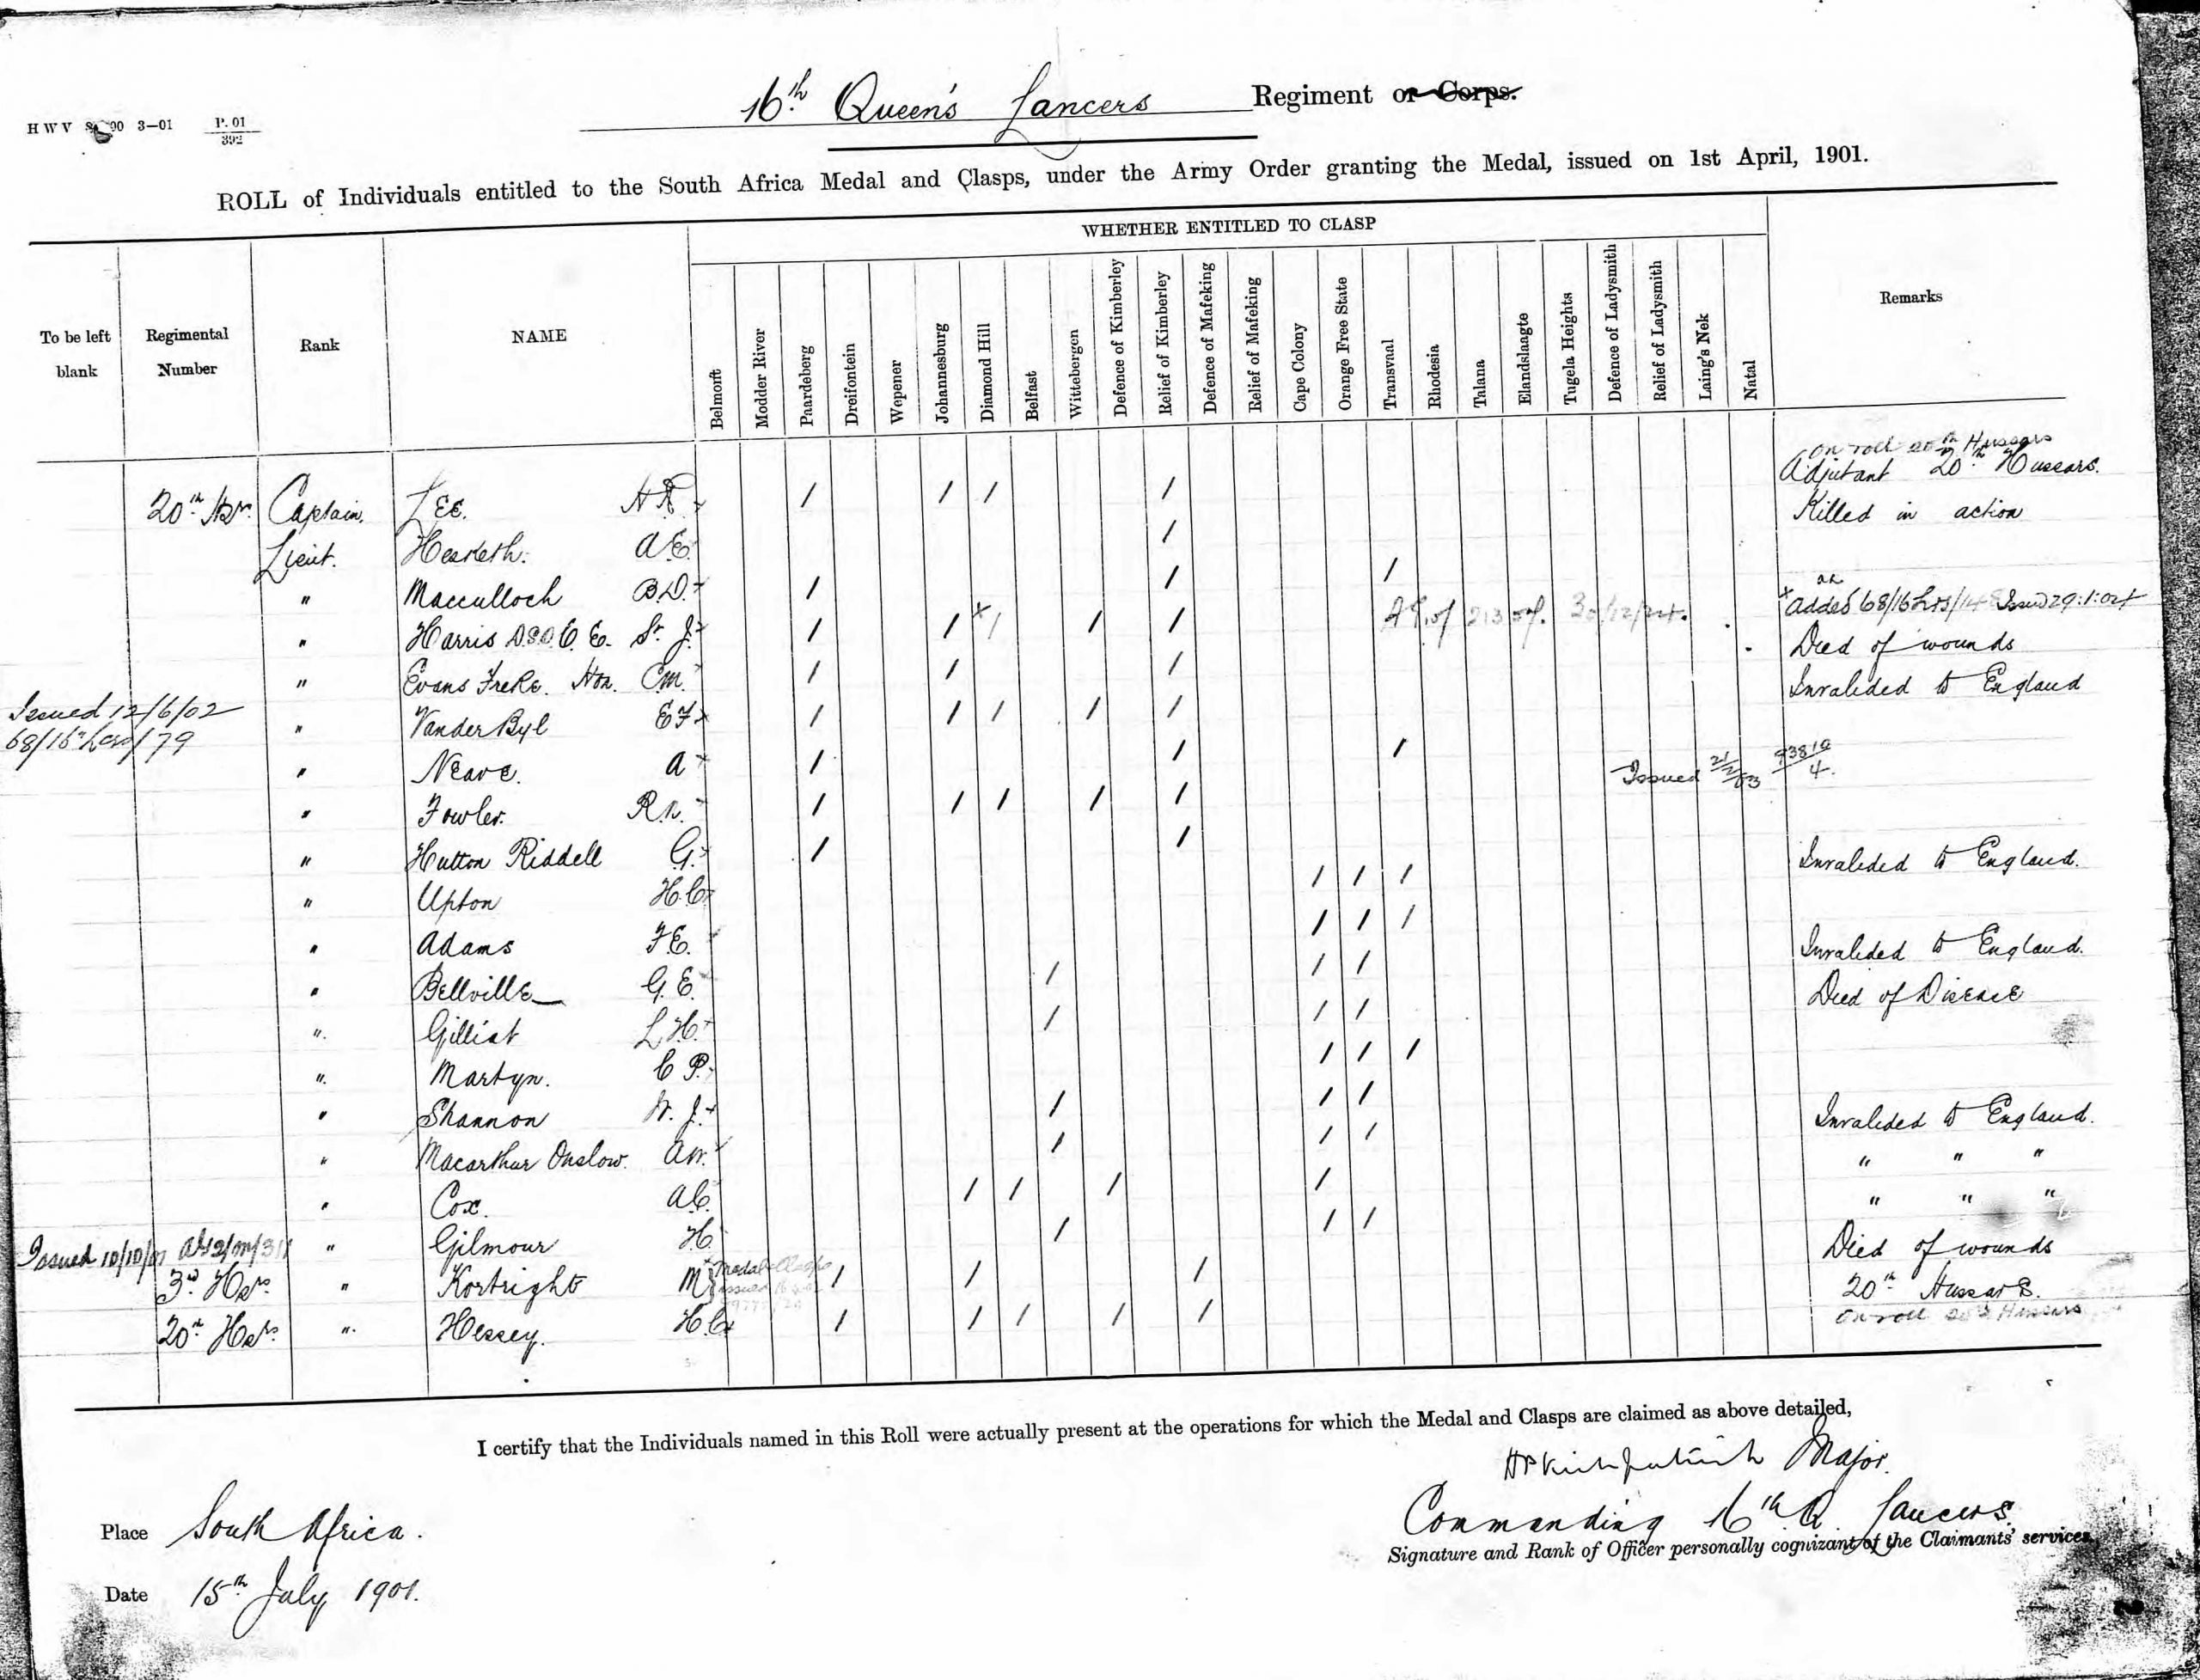 16th Queen's Lancers Regiment or Corps.
H W V 3—01 P. 01 / 392
ROLL of Individuals entitled to the South Africa Medal and Clasps, under the Army Order granting the Medal, issued on 1st April, 1901.
To be left blank
Regimental Number
Rank
NAME
WHETHER ENTITLED TO CLASP
Belmont
Modder River
Paardeberg
Dreifontein
Wepener
Johannesburg
Diamond Hill
Belfast
Wittebergen
Defence of Kimberley
Relief of Kimberley
Defence of Mafeking
Relief of Mafeking
Cape Colony
Orange Free State
Transvaal
Rhodesia
Talana
Elandslaagte
Tugela Heights
Defence of Ladysmith
Relief of Ladysmith
Laing's Nek
Natal
Remarks
on roll 20th Hussars
20th Hrs. Captain. Lee. / / / / Adjutant 20th Hussars.
Lieut. Hesketh. A E. / Killed in action
" Macculloch B.D. + / / /
" Harris D.S.O. C. E. St. J. + / / x/ / / x Added 68/16 Lrs/ Issued 29:1:04
" Evans Freke. Hon. C.M. / / / Died of wounds
Issued 12/6/02 68/16 Lcrs/79 " Vander Byl E F + / / / / / Invalided to England
" Neave. A + / / / Issued 21/2/03 93810/4.
" Fowler. R.N. / / / / /
" Hutton Riddell G. + / /
" Upton H.C. / / / Invalided to England.
" Adams F E. / / /
" Bellville G. E. / / / Invalided to England.
" Gilliat L H. / / / Died of Disease
" Martyn. C P. / / /
" Shannon W. J. + / / /
" Macarthur Onslow. A.W. / / / Invalided to England.
" Cox. A C. / / / / " " "
Issued 10/10/01 " Gilmour H. / / / " " "
3rd Hrs. " Kortright M / / / Died of wounds
20th Hrs. " Hessey. H. C + / / / / / 20th Hussars.
on roll 20th Hussars
I certify that the Individuals named in this Roll were actually present at the operations for which the Medal and Clasps are claimed as above detailed,
Major.
Commanding 16th Q. Lancers.
Signature and Rank of Officer personally cognizant of the Claimants' services.
Place South Africa.
Date 15th July 1901.